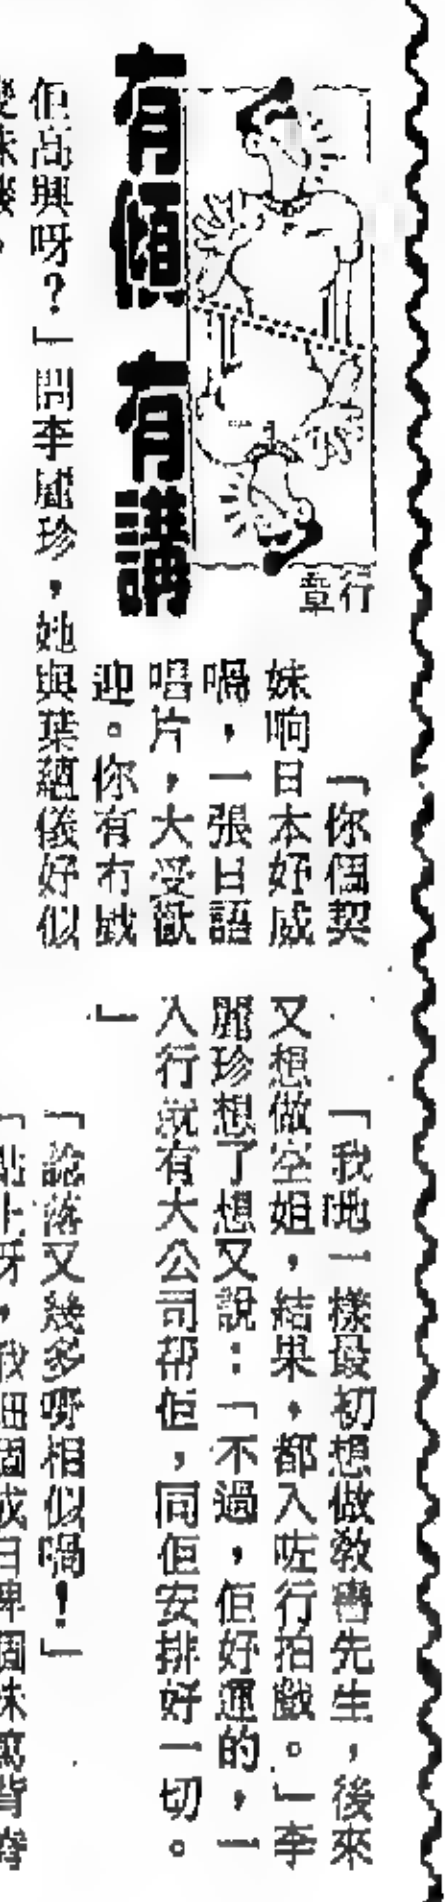 有傾有講
行章
「你個契
妹响日本好威
喎，一張日語
唱片，大受歡
迎。你有冇戥
佢高興呀？」問李麗珍，她與葉蘊儀好似
「我哋一樣最初想做教書先生，後來
又想做空姐，結果，都入咗行拍戲。」李
麗珍想了想又說：「不過，佢好運的，一
入行就有大公司帮佢，同佢安排好一切。
」
「說落又幾多嘢相似喎！」